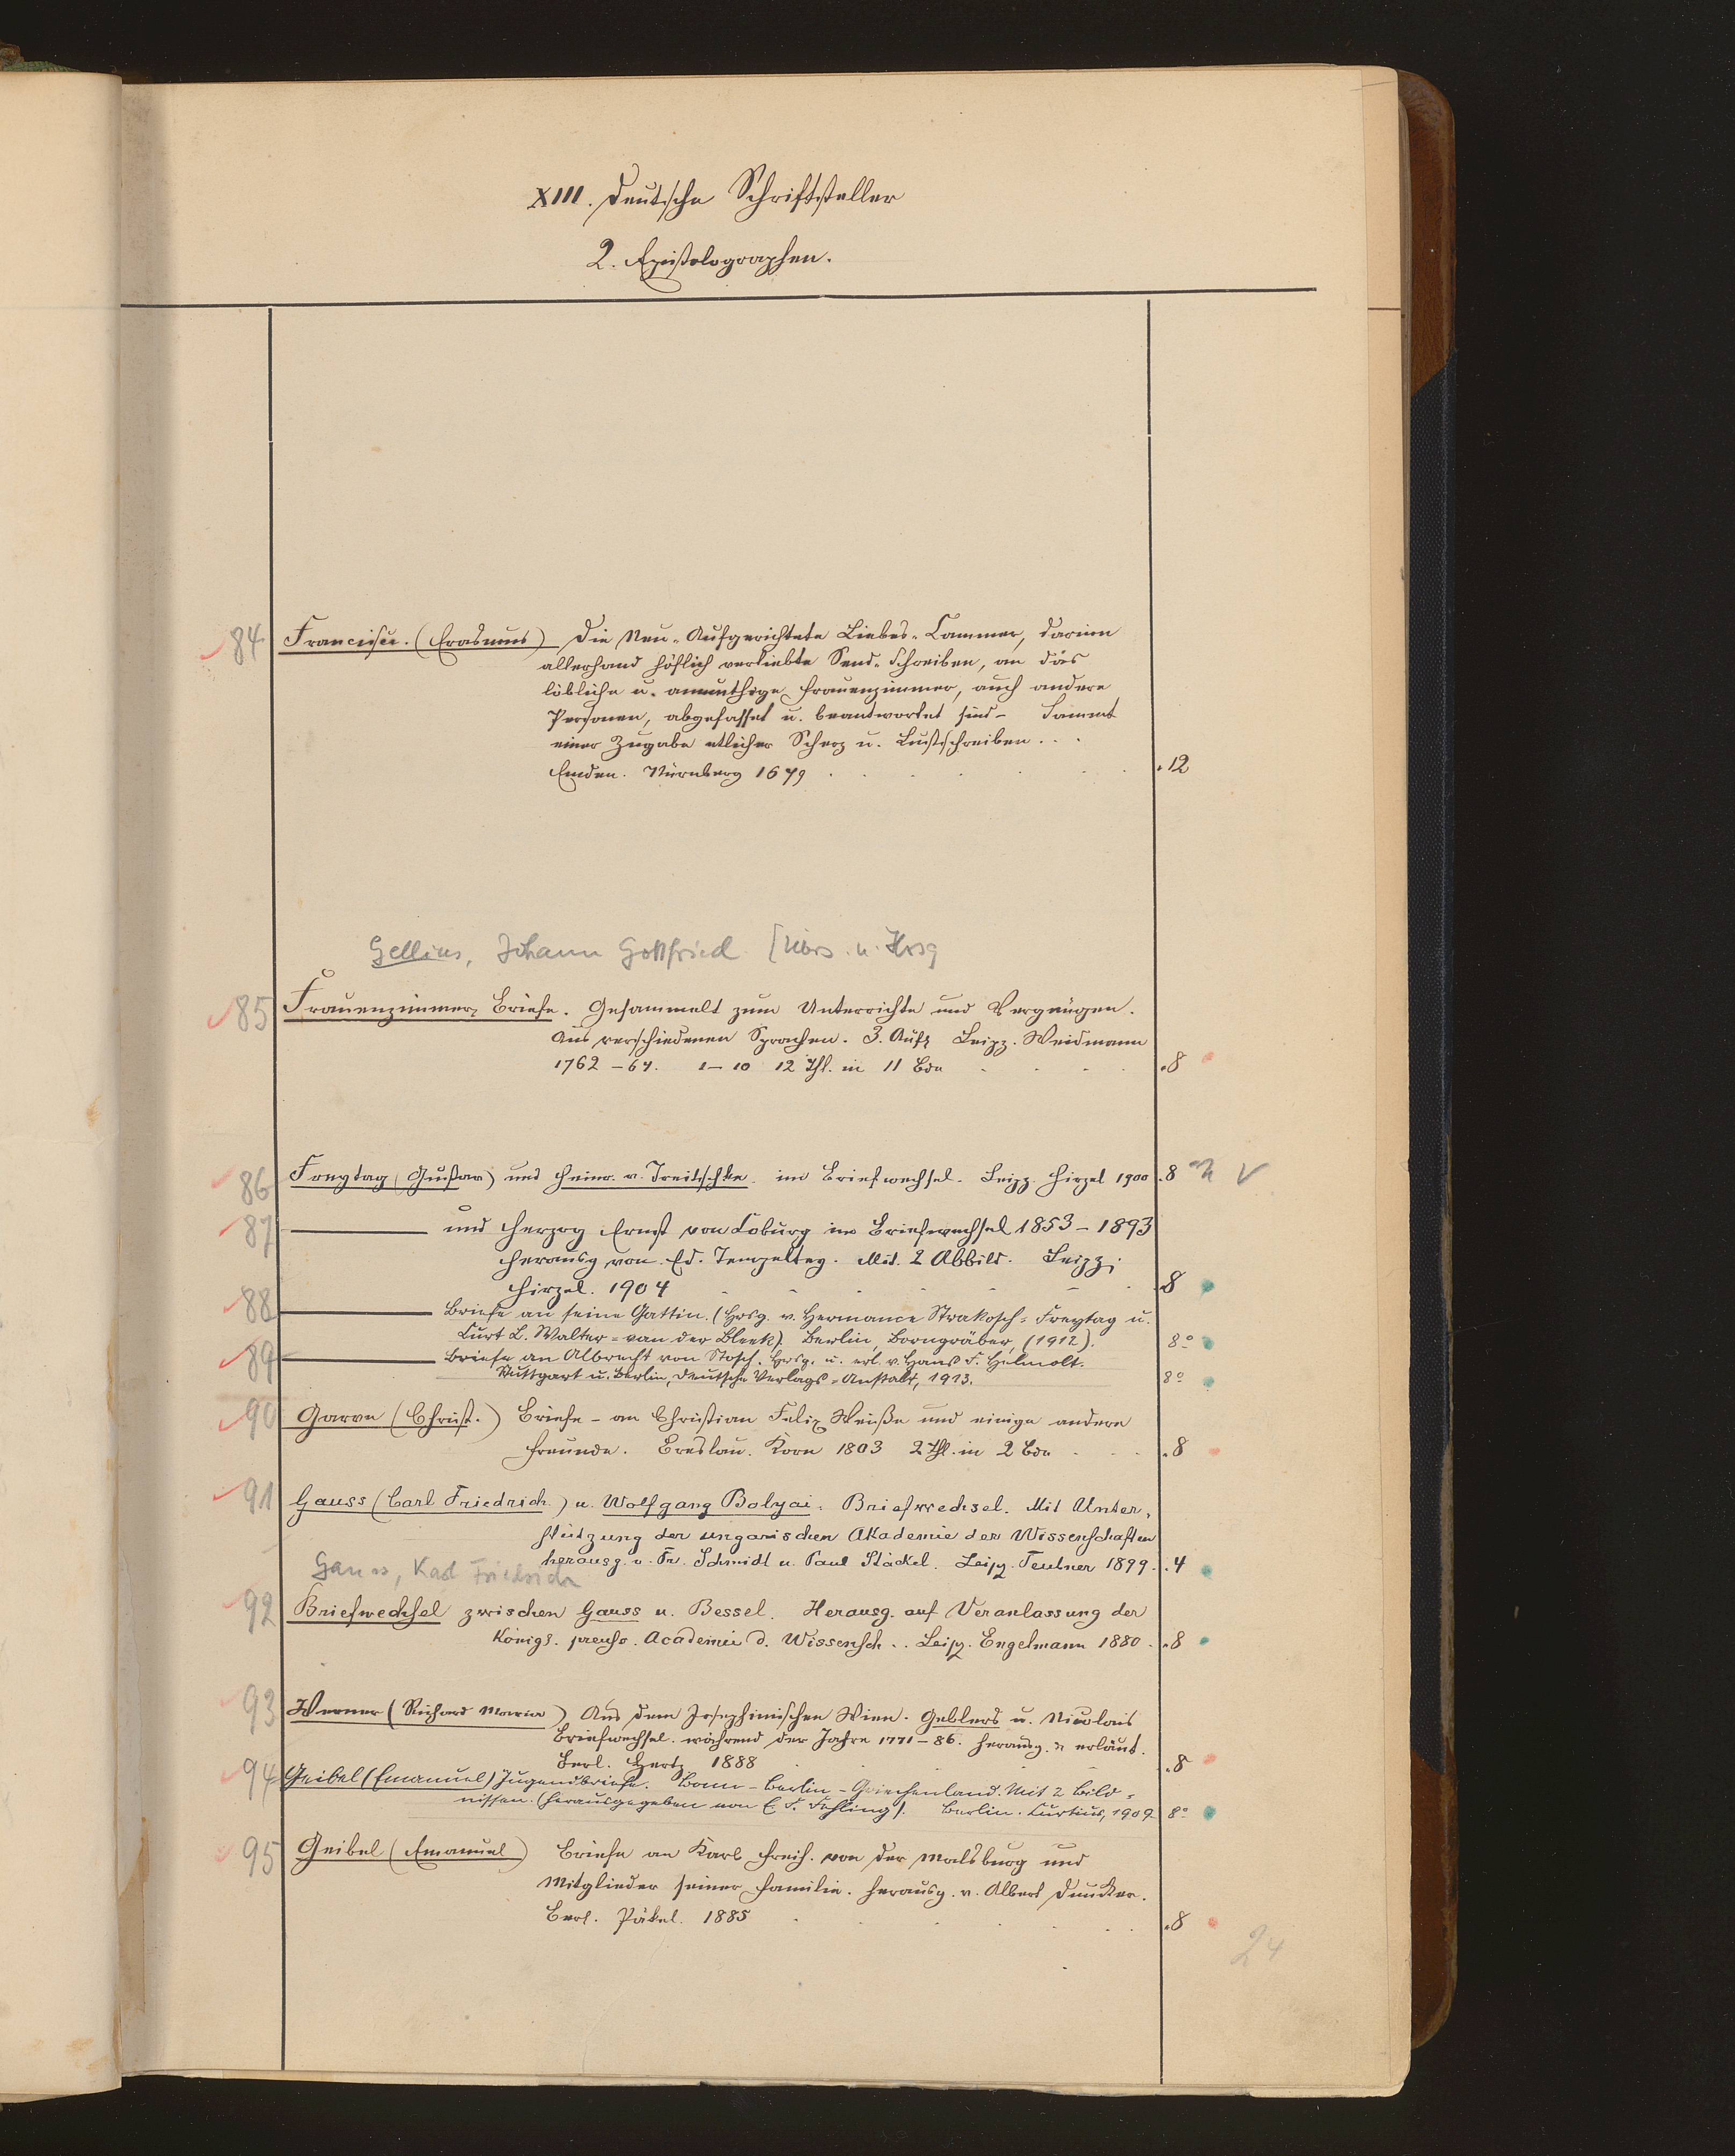 XIII. Deutsche Schriftsteller
2. Epistolographen.
84 Francisci. (Erasmus) Die Neu-Aufgerichtete Liebes-Cammer, darinn
allerhand höflich verliebte Send-Schreiben, an das
löbliche u. anmuthige Frauenzimmer, auch andere
Personen, abgefasset u. beantwortet sind – Sammt
einer Zugabe etlicher Scherz u. Lustschreiben ...
Emden. Nürnberg 1679 . 12
Gellius, Johann Gottfried [Übers. u. Hrsg
85 Frauenzimmer, Briefe. Gesammelt zum Unterrichte und Vergnügen.
Aus verschiedenen Sprachen. 3. Aufl Leipz. Weidmann
1762–67. 1–10 12 Thl. in 11 Bdn . 8
86 Freytag (Gustav) und Heinr. v. Treitschke im Briefwechsel. Leipz. Hirzel 1900 . 8
87 — und Herzog Ernst von Coburg im Briefwechsel 1853–1893
Herausg von Ed. Tempeltey. Mit 2 Abbild. Leipz.
Hirzel. 1904 . 8
88 — Briefe an seine Gattin. (Hrsg. v. Hermance Strakosch=Freytag u.
Curt L. Walter=van der Bleek). Berlin, Borngräber, (1912). 8°
89 — Briefe an Albrecht von Stosch. Hrsg. u. erl. v. Hans F. Helmolt.
Stuttgart u. Berlin, Deutsche Verlags=Anstalt, 1913. 8°
90 Garve (Christ.) Briefe – an Christian Felix Weiße und einige andere
Freunde. Breslau. Korn 1803 2 Thl. in 2 Bdn . 8
91 Gauss (Carl Friedrich) u. Wolfgang Bolyai. Briefwechsel. Mit Unter,
stützung der ungarischen Akademie der Wissenschaften
herausg. v. Fr. Schmidt u. Paul Stäckel. Leipz. Teubner 1899. . 4
Gauss, Karl Friedrich
92 Briefwechsel zwischen Gauss u. Bessel. Herausg. auf Veranlassung der
Königl. preuss. Academie d. Wissensch.. Leipz. Engelmann 1880 . 8
93 Werner (Richard Maria) Aus dem Josephinischen Wien. Geblers u. Nicolais
Briefwechsel während der Jahre 1771–86. Herausg. u erläut.
Berl. Hertz 1888 . 8
94 Geibel (Emanuel) Jugendbriefe. Bonn – Berlin – Griechenland. Mit 2 Bild=
nissen. (Herausgegeben von E. F. Fehling). Berlin. Curtius, 1909 8°
95 Geibel (Emanuel) Briefe an Karl Freih. von der Malsburg und
Mitglieder seiner Familie. Herausg. v. Albert Duncker.
Berl. Pätel. 1885 . 8
24